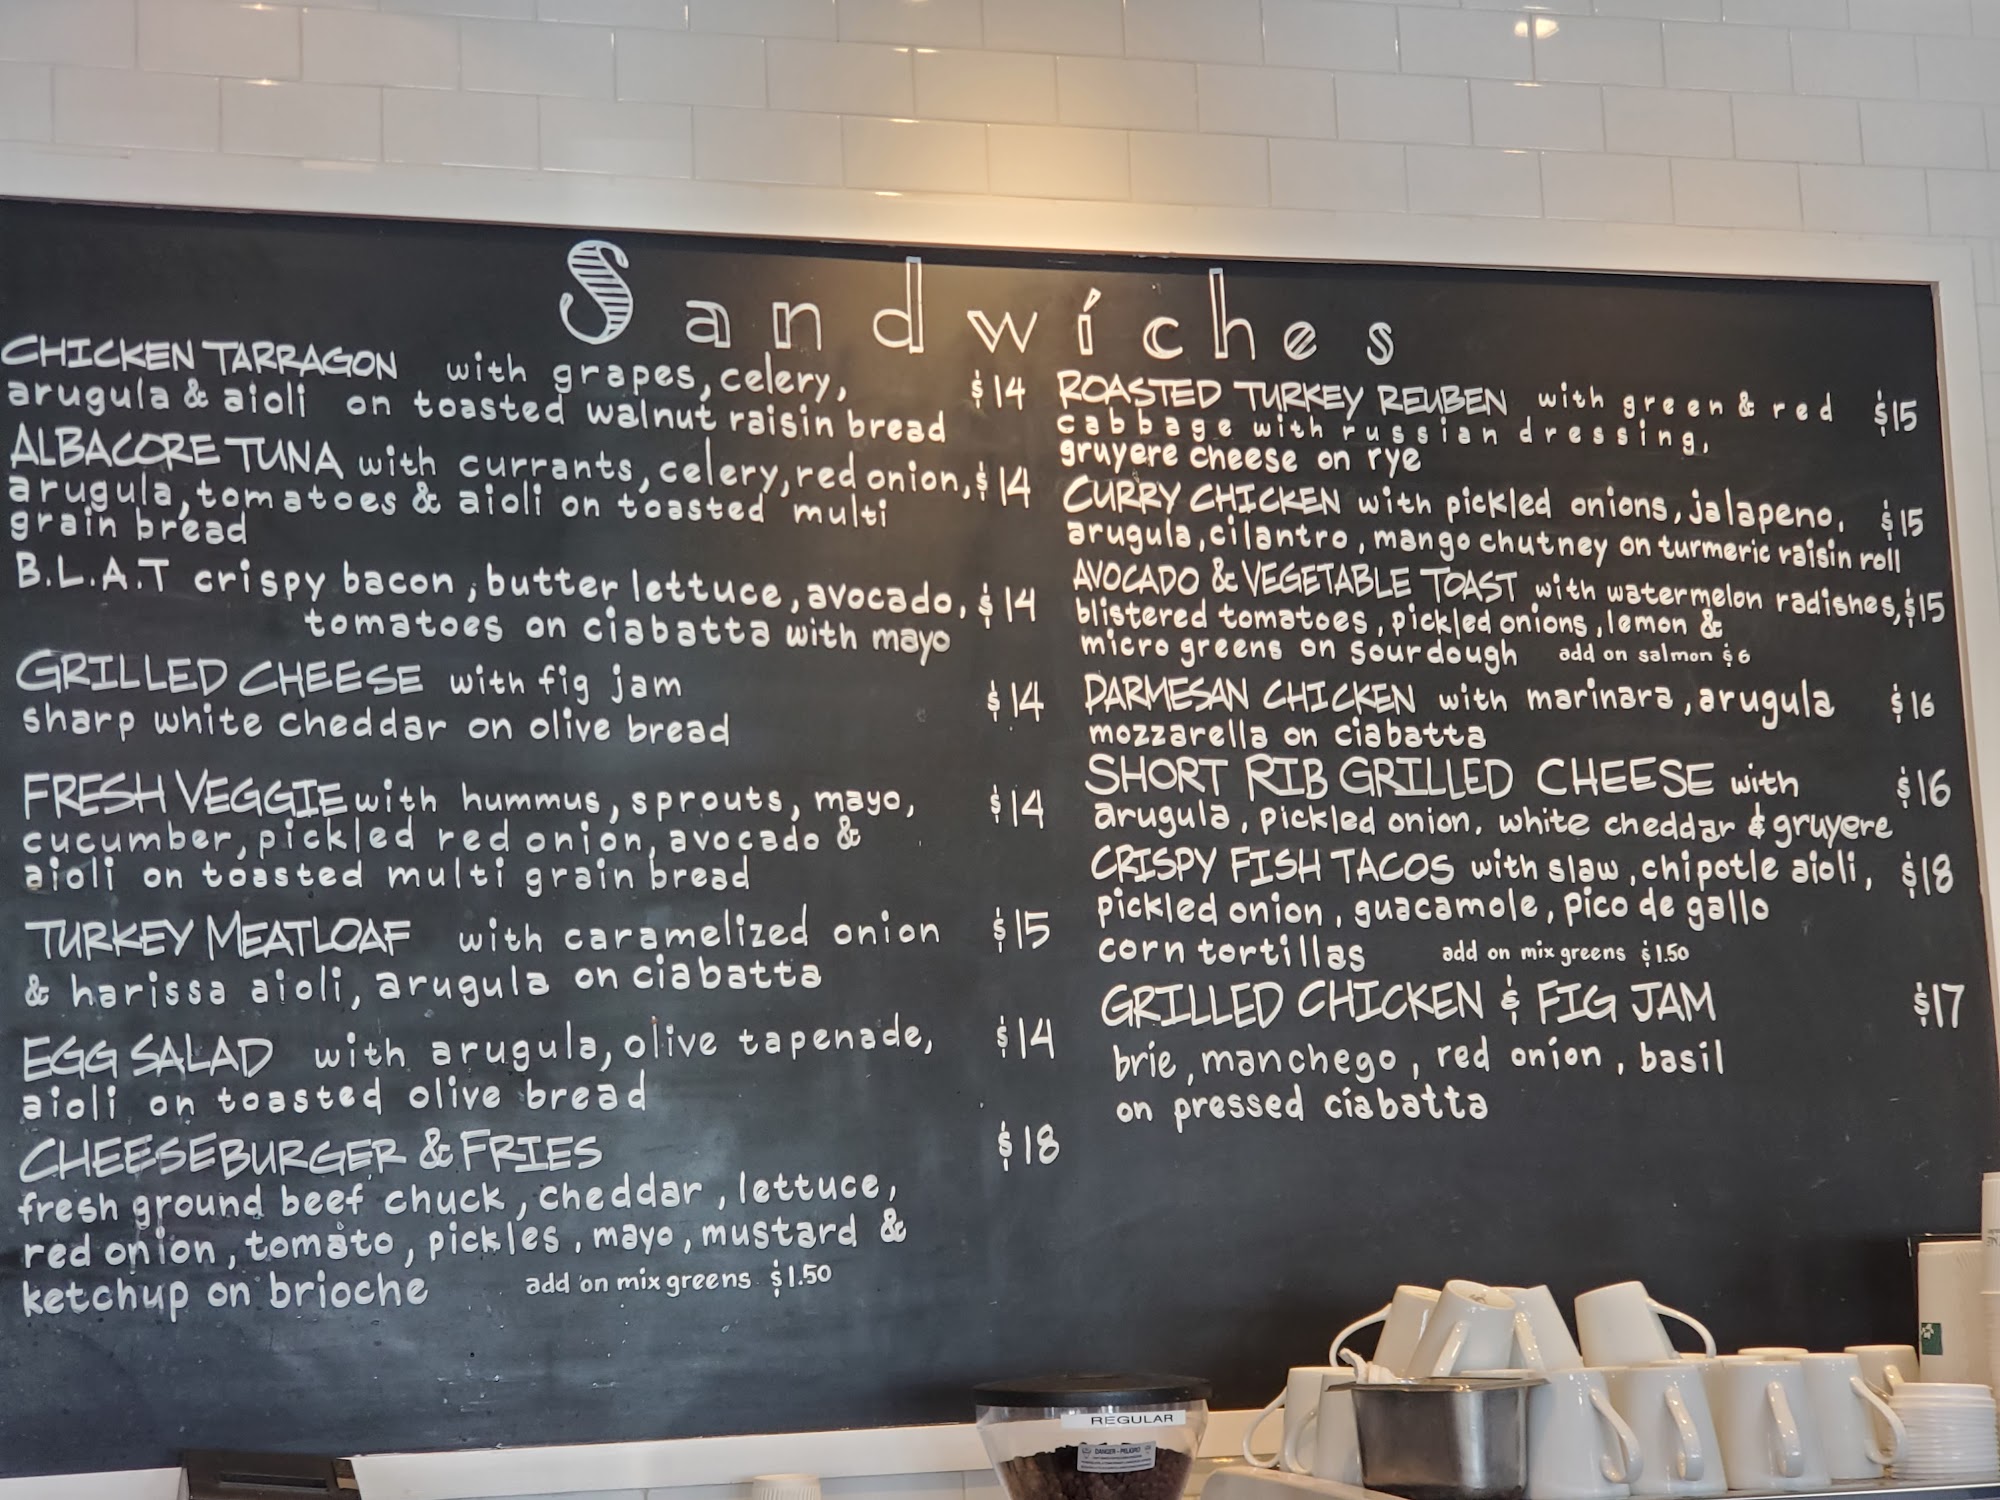 Sandwiches
CHICKEN TARRAGON with grapes, celery, $14
arugula & aioli on toasted walnut raisin bread
ALBACORE TUNA with currants, celery, red onion, $14
arugula, tomatoes & aioli on toasted multi
grain bread
B.L.A.T crispy bacon, butter lettuce, avocado, $14
tomatoes on ciabatta with mayo
GRILLED CHEESE with fig jam $14
sharp white cheddar on olive bread
FRESH VEGGIE with hummus, sprouts, mayo, $14
cucumber, pickled red onion, avocado &
aioli on toasted multi grain bread
TURKEY MEATLOAF with caramelized onion $15
& harissa aioli, arugula on ciabatta
EGG SALAD with arugula, olive tapenade, $14
aioli on toasted olive bread
CHEESEBURGER & FRIES $18
fresh ground beef chuck, cheddar, lettuce,
red onion, tomato, pickles, mayo, mustard &
ketchup on brioche add on mix greens $1.50
ROASTED TURKEY REUBEN with green & red $15
cabbage with russian dressing,
gruyere cheese on rye
CURRY CHICKEN with pickled onions, jalapeno, $15
arugula, cilantro, mango chutney on turmeric raisin roll
AVOCADO & VEGETABLE TOAST with watermelon radishes, $15
blistered tomatoes, pickled onions, lemon &
micro greens on sourdough add on salmon $6
PARMESAN CHICKEN with marinara, arugula $16
mozzarella on ciabatta
SHORT RIB GRILLED CHEESE with $16
arugula, pickled onion, white cheddar & gruyere
CRISPY FISH TACOS with slaw, chipotle aioli, $18
pickled onion, guacamole, pico de gallo
corn tortillas add on mix greens $1.50
GRILLED CHICKEN & FIG JAM $17
brie, manchego, red onion, basil
on pressed ciabatta
REGULAR
DANGER - PELIGRO